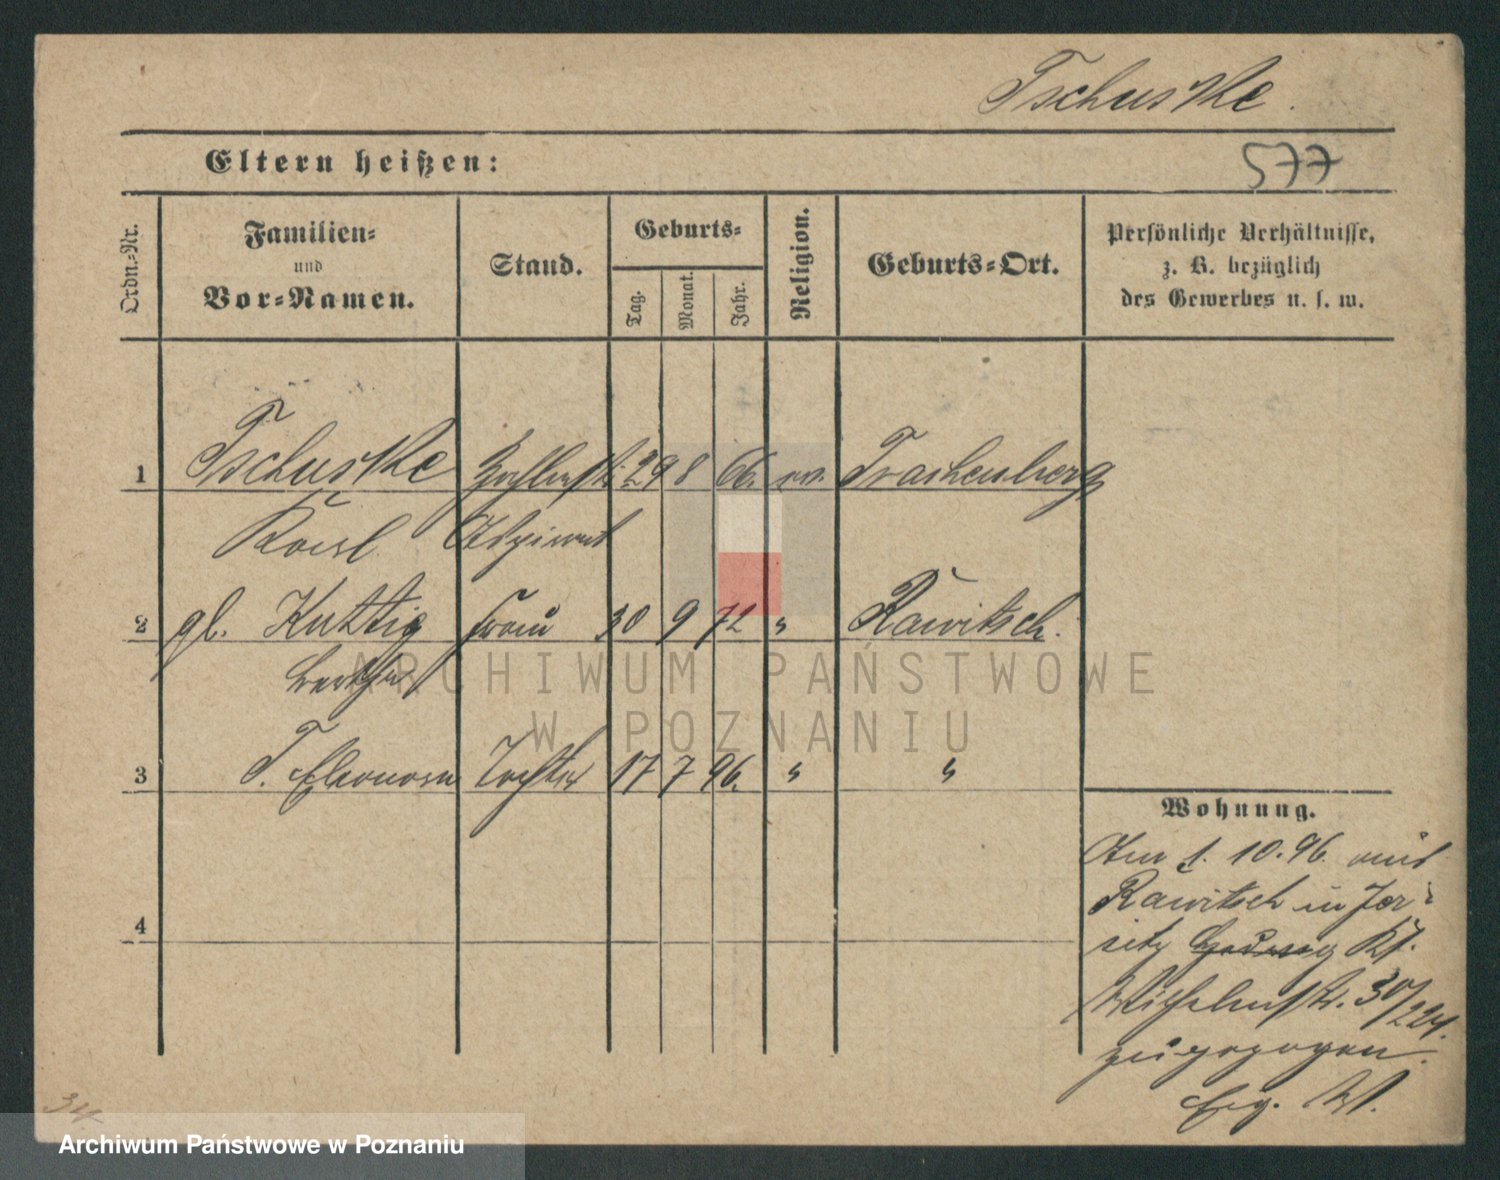 Tschuschke.
Eltern heißen:
577
Ordn.-Nr.
Familien-
und
Vor-Namen.
Stand.
Geburts-
Tag.
Monat.
Jahr.
Religion.
Geburts-Ort.
Persönliche Verhältnisse,
z. B. bezüglich
des Gewerbes u. s. w.
1 Tschuschke 29 8 66. ev. Trachenberg
Karl Aspirant
2 gb. Kuttig Frau 30 9 72 " Rawitsch.
Bertha
3 T. Eleonora Tochter 17 7 96. " "
4
Wohnung.
Am 1. 10. 96. aus
Rawitsch in Jer-
sitz
Wilhelmstr.
zugezogen.
34
ARCHIWUM PAŃSTWOWE
W POZNANIU
Archiwum Państwowe w Poznaniu